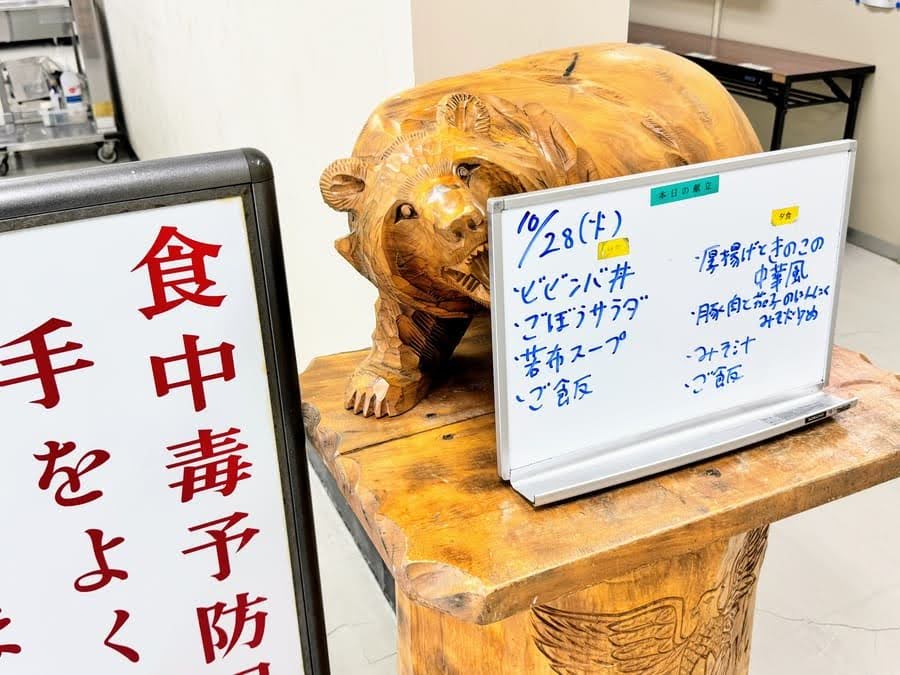 食中毒予防
手をよく
本日の献立
10/28(火)
・ビビンバ丼
・ごぼうサラダ
・若布スープ
・ご飯
夕食
・厚揚げときのこの
中華風
・豚肉と茄子のにんにく
みそ炒め
・みそ汁
・ご飯